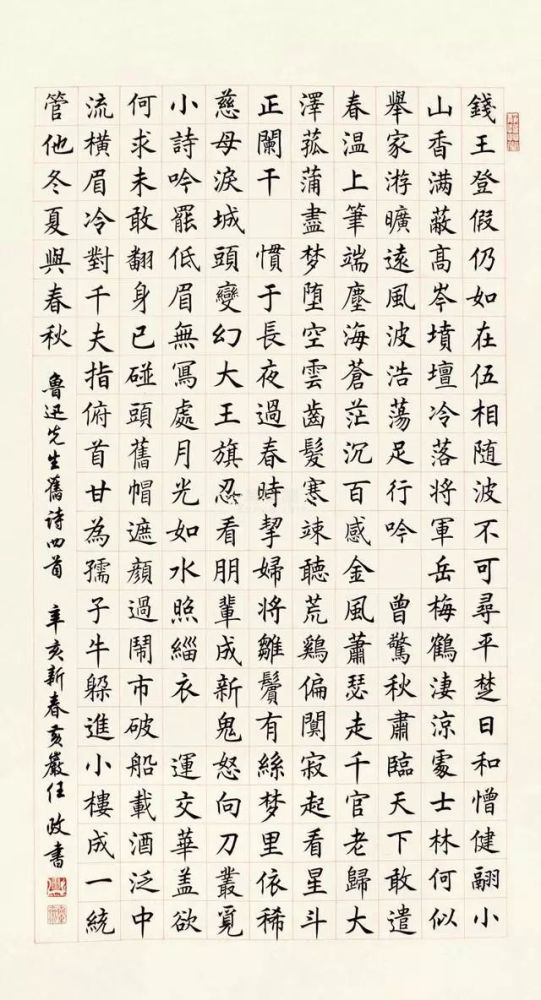 錢王登假仍如在伍相随波不可尋平楚日和憎健翮小
山香满蔽高岑墳壇冷落將軍岳梅鶴淒涼處士林何似
舉家游曠遠風波浩蕩足行吟 曾驚秋肅臨天下敢遣
春温上筆端塵海蒼茫沉百感金風蕭瑟走千官老歸大
澤菰蒲盡梦堕空雲齒髮寒竦聽荒鷄偏闃寂起看星斗
正闌干 慣于長夜過春時挈婦將雛鬢有絲梦里依稀
慈母淚城頭變幻大王旗忍看朋輩成新鬼怒向刀叢覓
小詩吟罷低眉無冩處月光如水照緇衣 運交華盖欲
何求未敢翻身已碰頭舊帽遮顔過鬧市破船載酒泛中
流横眉冷對千夫指俯首甘為孺子牛躲進小樓成一統
管他冬夏與春秋 魯迅先生舊诗四首 辛亥新春亥嚴任政書